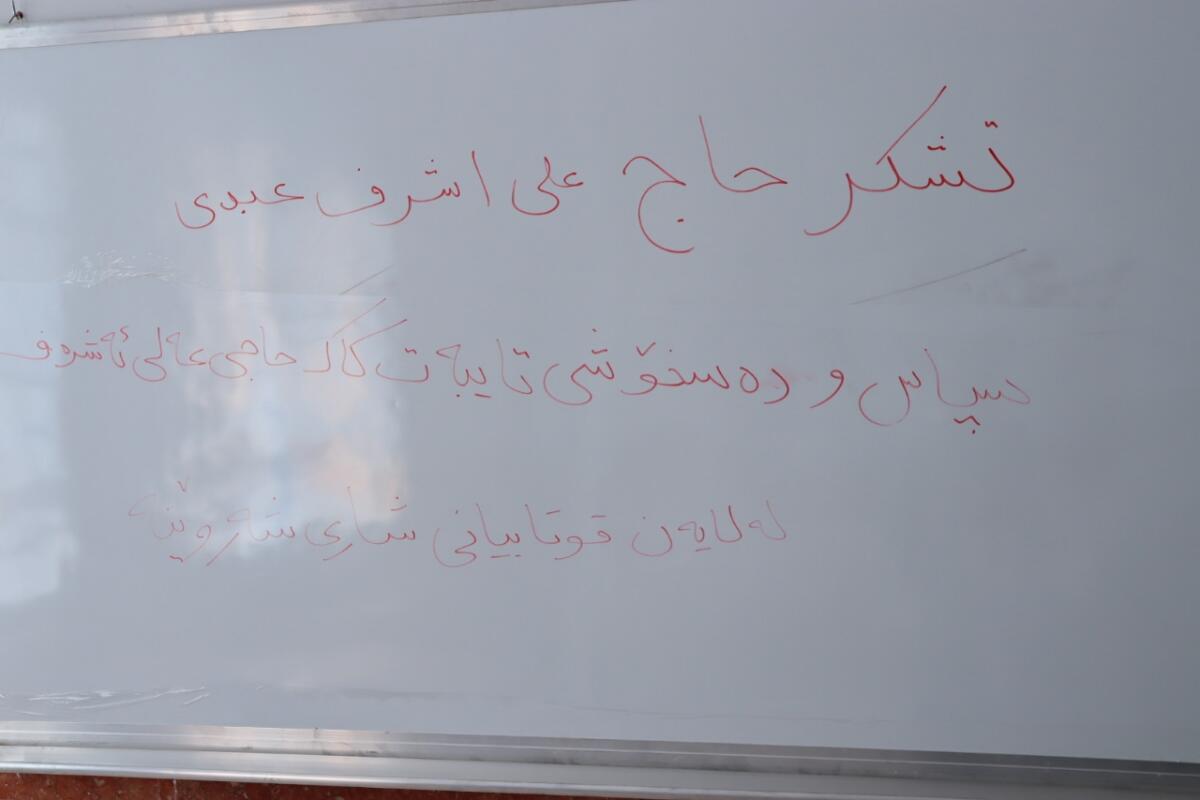 تشکر حاج علی اشرف عبدی
سپاس و دەسخۆشی تایبەت کاک حاجی عەلی ئەشرەف
لەلایەن قوتابیانی شاری